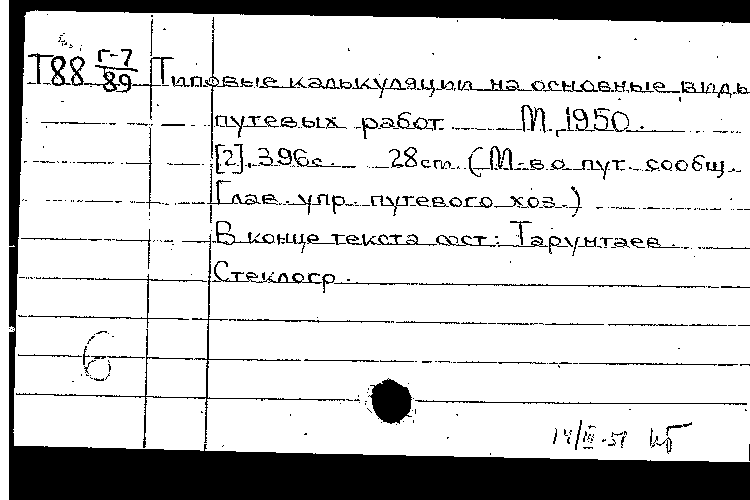 Т88 Г-7/89 Типовые калькуляции на основные виды
путевых работ. М., 1950.
[2], 396с. 28см. (М-во пут. сообщ.
Глав. упр. путевого хоз.)
В конце текста сост.: Тарунтаев.
Стеклогр.
6
14/III-51